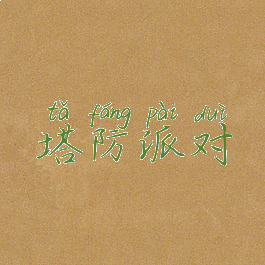 tǎ fáng pài duì
塔防派对